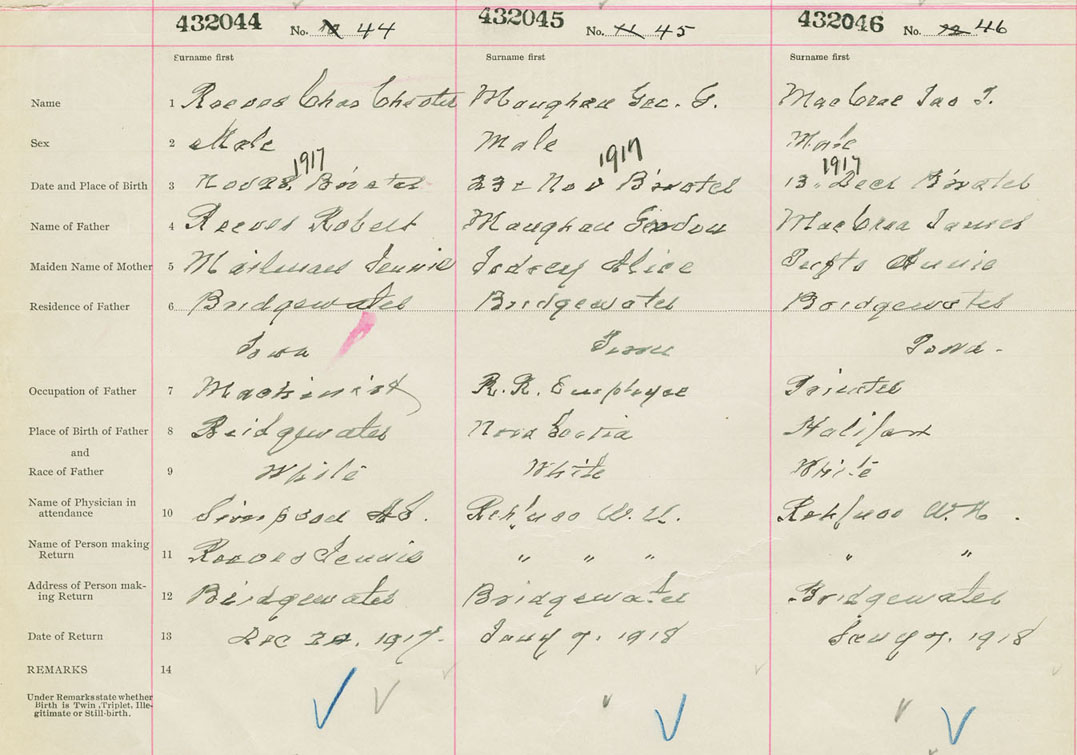 432044 No. 44
432045 No. 11 45
432046 No. 12 46
Surname first Surname first Surname first
Name 1 Reeves Chas Chester Maughan Geo. G. MacCrae Jas T.
Sex 2 Male Male Male
1917 1917 1917
Date and Place of Birth 3 B'water 23r Nov B'water 13. Dec B'water
Name of Father 4 Reeves Robert Maughan Gordon MacCrea James
Maiden Name of Mother 5 Mailman Jennie Alice Tufts Annie
Residence of Father 6 Bridgewater Bridgewater Bridgewater
Town Town Town.
Occupation of Father 7 Machinist R. R. Employee Printer
Place of Birth of Father 8 Bridgewater Nova Scotia Halifax
and
Race of Father 9 White White White
Name of Physician in
attendance 10 Simpson Reh'uso W. Reh'uso W. H.
Name of Person making
Return 11 Reeves Jennie " " " " "
Address of Person mak-
ing Return 12 Bridgewater Bridgewater Bridgewater
Date of Return 13 Dec 1917. Jany 7. 1918 Jany 7. 1918
REMARKS 14
Under Remarks state whether
Birth is Twin, Triplet, Ille-
gitimate or Still-birth.